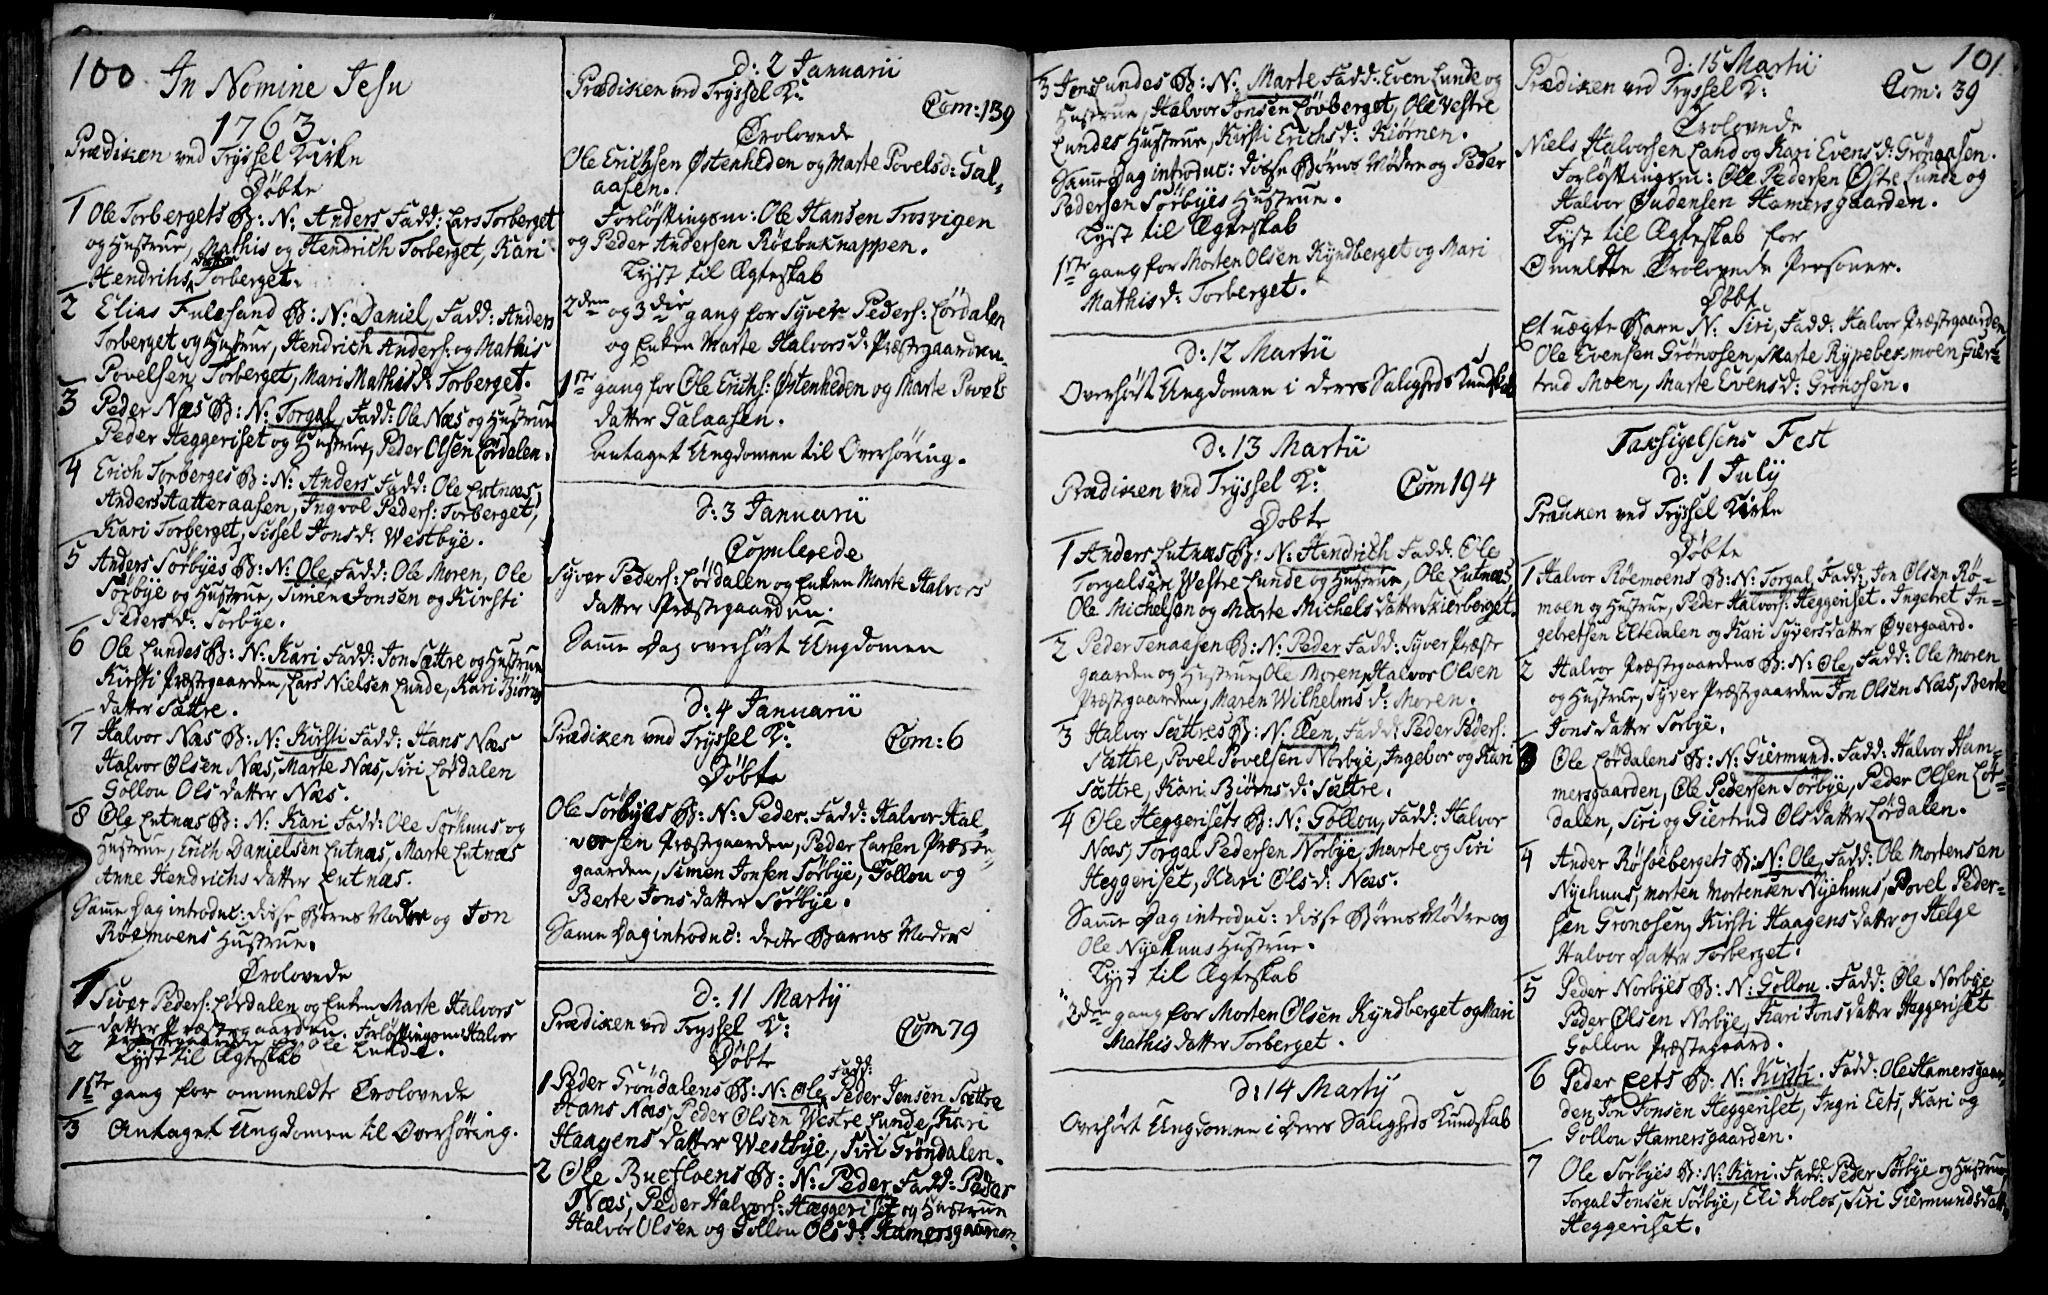 100
In Nomine Jesu
1763
Prædiken ved Tryssel Kirke
Døbte
1 Ole Torbergets B: N: Anders Fadd: Lars Torberget
og Hustrue, Mathis og Hendrich Torberget, Kari
Hendrihs datter Torberget.
2 Elias Fulesand B: N: Daniel, Fadd: Anders
Torberget og Hustrue, Hendrich Anders: og Mathis
Povelsen Torberget, Mari Mathis d: Torberget.
3 Peder Næs B: N: Torgal, Fadd: Ole Næs og Hustrue
Peder Heggeriset og Hustrue, Peder Olsen Lørdalen.
4 Erich Torberges B: N: Anders Fadd: Ole Lutnæs,
Anders Hatteraasen, Ingvol Peders: Torberget,
Kari Torberget, Sissel Jonsd: Westbye.
5 Anders Sørbyes B: N: Ole, Fadd: Ole Moren, Ole
Sørbye og Hustrue, Simen Jonsen og Kirsti
Pedersd: Sørbye.
6 Ole Lundes B: N: Kari Fadd: Jon Sættre og Hustrue
Kirsti Præstegaarden, Lars Nielsen Lunde, Kari Biørns
datter Sættre.
7 Halvor Næs B: N: Kirsti Fadd: Hans Næs
Halvor Olsen Næs, Marte Næs, Siri Lørdalen
Gollou Ols datter Næs.
8 Ole Lutnæs B: N: Kari Fadd: Ole Sørhuus og
Hustrue, Erich Danielsen Lutnæs, Marte Lutnæs
Anne Hendrichs datter Lutnæs.
Same Dag introduc: disse Børns Moder og Jon
Røemoens Hustrue.
Trolovede
1 Siver Peders: Lørdalen og Enken Marte Halvors
datter Præstegaarden. Forløftingsm: Halvor
Præstegaarden og Ole Lunde.
2 Lyst til Ægteskab
1ste gang for ommeldte Trolovede
3 Antaget Ungdomen til Overhøring.
d: 2 Januarii
Prædiken ved Tryssel K:
Com: 139
Trolovede
Ole Erichsen Østenheden og Marte Povelsd: Gal-
aasen.
Forløftingsm: Ole Hansen Trosvigen
og Peder Andersen Røebuknappen.
Lyst til Ægteskab
2den og 3die gang for Syver Peders: Lørdalen
og Enken Marte Halvors d: Præstegaarden.
1ste gang for Ole Erichs: Østenheden og Marte Povels
datter Galaasen.
Antaget Ungdomen til Overhøring.
d: 3 Januarii
Copulerede
Syver Peders: Lørdalen og Enken Marte Halvors
datter Præstegaarden.
Same Dag overhørt Ungdomen
d: 4 Januarii
Prædiken ved Tryssel K:
Com: 6
Døbte
Ole Sørbyes B: N: Peder. Fadd: Halvor Hal-
vorsen Præstegaarden, Peder Larsen Præste-
gaarden, Simen Jonsen Sørbye, Gollou og
Berte Jons datter Sørbye.
Same Dag introduc: dette Barns Moder
d: 11 Martij
Prædiken ved Tryssel K:
Com 79
Døbte
1 Peder Grøndalens B: N: Ole, Fadd: Peder Jensen Sættre
Hans Næs, Peder Olsen Westre Lunde, Kari
Haagens datter Westbye, Siri Grøndalen.
2 Ole Buefloens B: N: Peder Fadd: Peder
Næs, Peder Halvors: Heggeriset og Hustrue
Halvor Olsen og Gollou Olsd: Hamersgaarden.
3 Jens Lundes B: N: Marte Fadd: Even Lunde og
Hustrue, Halvor Jonsen Løvberget, Ole Vestre
Lundes Hustrue, Kirsti Erichsd: Kiørnen.
Same Dag introduc: disse Børns Mødre og Peder
Pedersen Sørbyes Hustrue.
Lyst til Ægteskab
1ste gang for Morten Olsen Kyndberget og Mari
Mathisd: Torberget.
d: 12 Martii
Overhørt Ungdomen i deres Saligheds Kundskab
d: 13 Martii
Prædiken ved Tryssel K:
Com 194
Døbte
1 Anders Lutnæs B: N: Hendrich Fadd: Ole
Torgalsen Westre Lunde og Hustrue, Ole Lutnæs,
Ole Michelsen og Marte Michels datter Skierberget.
2 Peder Tenaasen B: N: Peder Fadd: Syver Præste
gaarden og Hustrue, Ole Moren, Halvor Olsen
Præstegaarden, Maren Wilhelms d: Moren.
3 Halvor Sættres B: N: Elen, Fadd: Peder Peders:
Sættre, Povel Povelsen Norbye, Ingebor og Kari
Sættre, Kari Biørns d: Sættre.
4 Ole Heggerisets B: N: Gollou, Fadd: Halvor
Næs, Torgal Pedersen Norbye, Marte og Siri
Heggeriset, Kari Olsd: Næs.
Same Dag introduc: disse Børns Mødre og
Ole Nyehuus Hustrue.
Lyst til Ægteskab
2den gang for Morten Olsen Kyndberget og Mari
Mathis datter Torberget.
d: 14 Martij
Overhørt Ungdomen i deres Saligheds Kundskab
101.
d: 15 Martii
Prædiken ved Tryssel K:
Com: 39
Trolovede
Niels Halvorsen Land og Kari Evens d: Grønaasen.
Forløftingsm: Ole Pedersen Østre Lunde og
Halvor Gudensen Hamersgaarden.
Lyst til Ægteskab for
Omeldte Trolovede Personer.
Døbt
Et uægte Barn N: Siri, Fadd: Halvor Præstegaarden,
Ole Evensen Grønosen, Marte Rypebekmoen, Gier-
trud Moen, Marte Evensd: Grønosen.
Taksigelsens Fest
d: 1 July
Prædiken ved Tryssel Kirke
Døbte
1 Halvor Røemoens B: N: Torgal, Fadd: Jon Olsen Rø-
moen og Hustrue, Peder Halvors: Heggeriset. Ingebret In-
gebretsen Eltedalen og Kari Syversdatter Øvergaard.
2 Halvor Præstegaardens B: N: Ole, Fadd: Ole Moren
og Hustrue, Syver Præstegaarden Jon Olsen Næs, Berte
Jons datter Sørbye.
3 Ole Lørdalens B: N: Giermund. Fadd: Halvor Ham-
mersgaarden, Ole Pedersen Sørbye, Peder Olsen Lør-
dalen, Siri og Giertrud Olsdatter Lørdalen.
4 Ander Røsøebergets B: N: Ole, Fadd: Ole Mortensen
Nyehuus, Morten Mortensen Nyehuus, Povel Peder-
sen Gronosen, Kirsti Haagens datter og Helge
Halvor datter Torberget.
5 Peder Norbyes B: N: Gollou. Fadd: Ole Norbye
Peder Olsen Norbye, Kari Jons datter Heggeriset
Gollou Præstegaard.
6 Peder Eets B: N: Kirsti. Fadd: Ole Hamersgaar-
den, Jon Jonsen Heggeriset, Ingri Eets, Kari og
Gollou Hamersgaarden.
7 Ole Sørbyes B: N: Kari. Fadd: Peder Sørbye og Hustrue,
Torgal Jonsen Sørbye, Eli Kolos, Siri Giermundsdatter
Heggeriset.